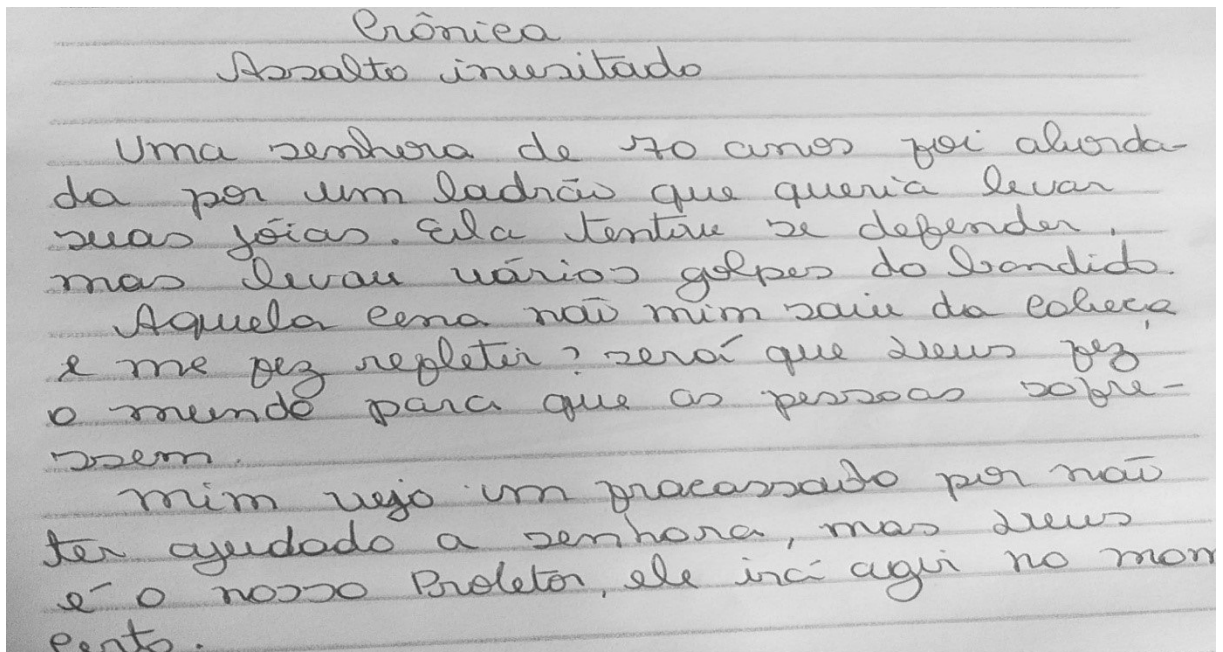 Crônica
Assalto inusitado
Uma senhora de 70 anos foi aborda-
da por um ladrão que queria levar
suas jóias. Ela tentou se defender,
mas levou vários golpes do bandido.
Aquela cena não mim saiu da cabeça
e me fez refletir? será que Deus fez
o mundo para que as pessoas sofre-
ssem.
mim vejo um fracassado por não
ter ajudado a senhora, mas Deus
é o nosso Protetor, ele irá agir no mom
certo.